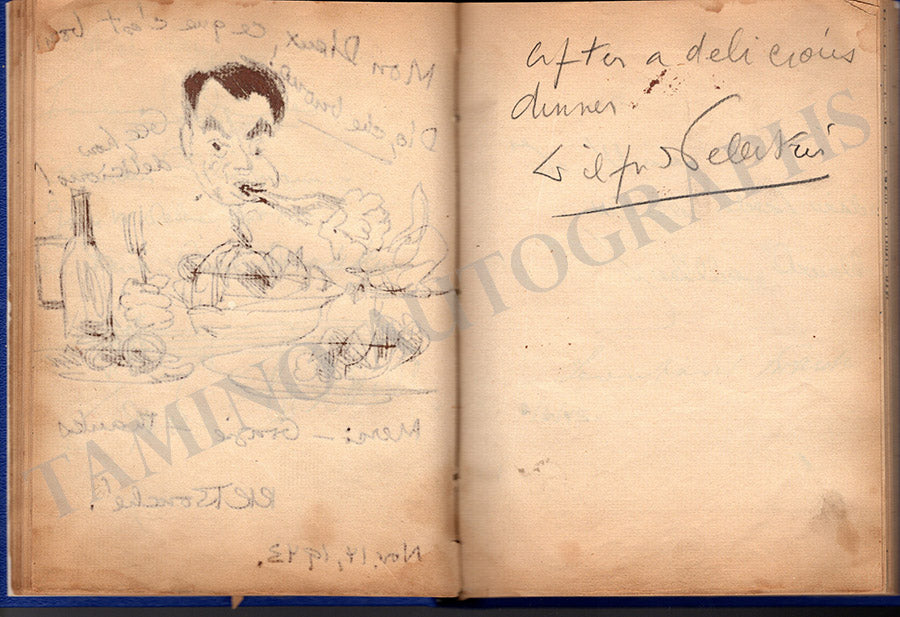 Mon Dieux, ce que c'est bon
Dio, che buono
Gee, how
delicious!
Merci - Grazie Thanks
Nov. 14, 1943.
After a delicious
dinner
Wilfrid Pelletier
TAMINO AUTOGRAPHS